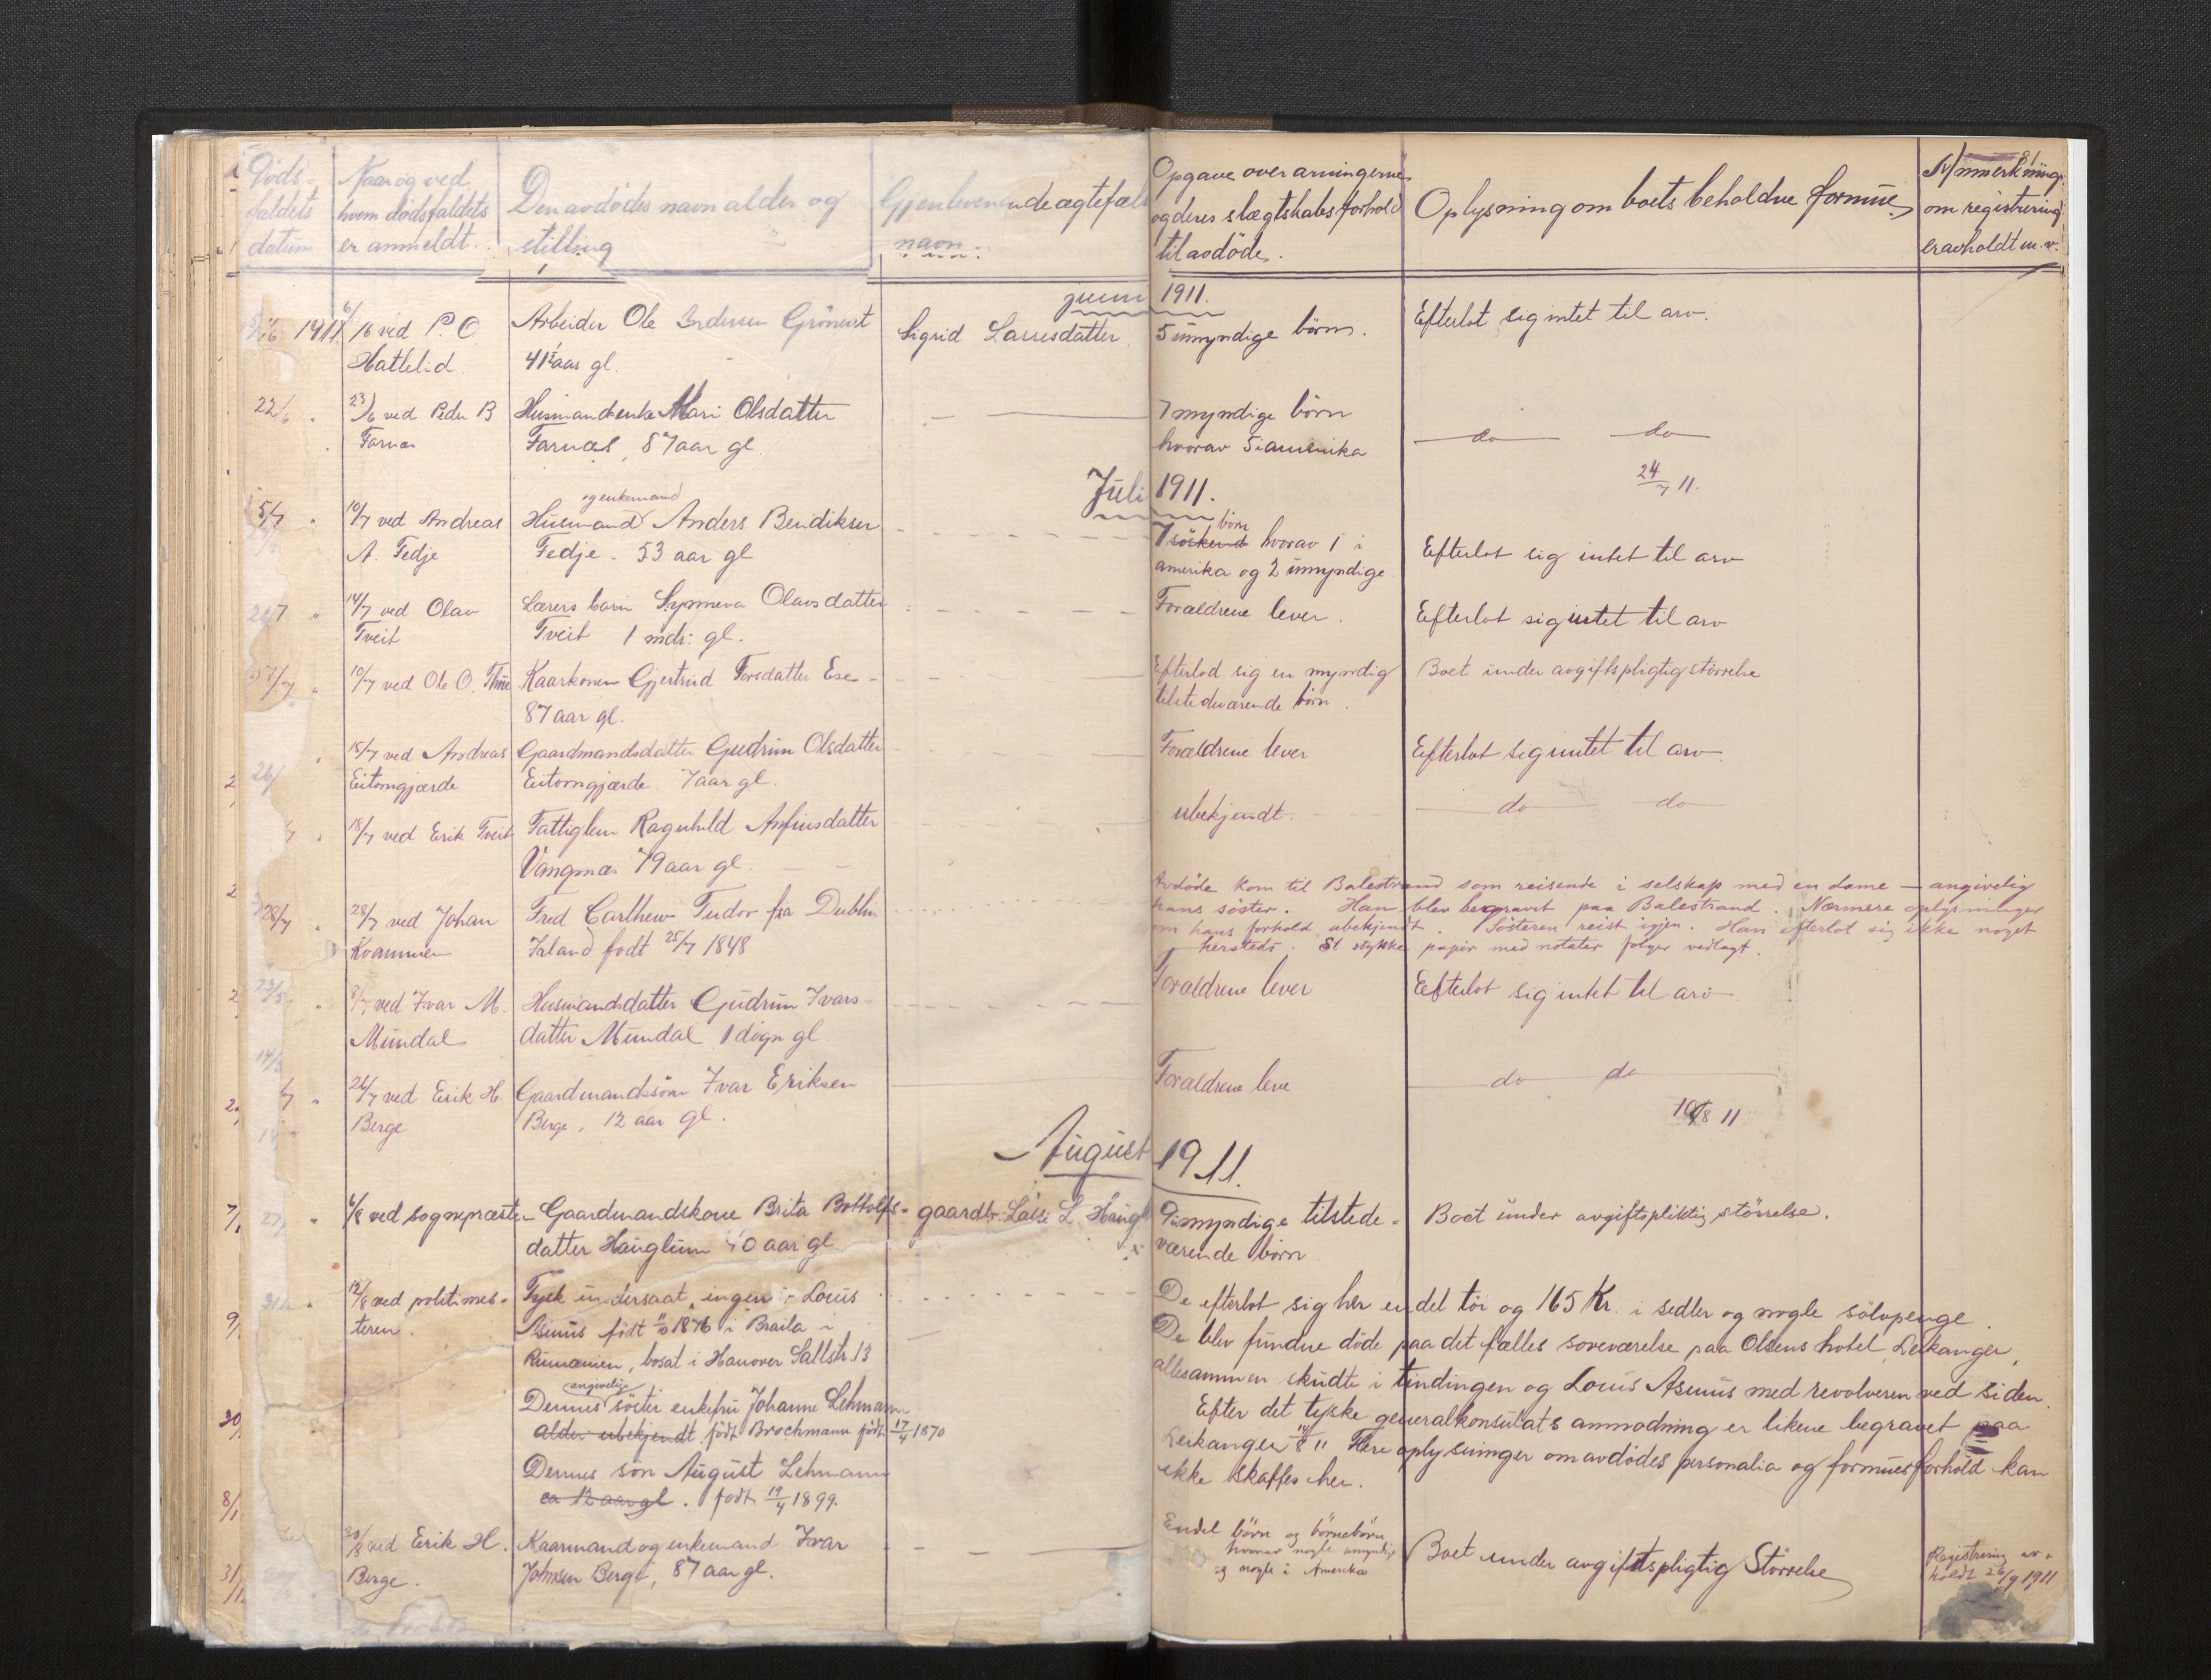 81
Døds-
faldets
datum
Naar og ved
hvem dødsfaldets
er anmeldt.
Den avdødes navn alder og
stilling
Gjenlevende ægtefæl
navn.
Opgave over arvingerne
og deres slægtskabsforhold
til avdøde.
Oplysning om boets beholdne formue
Anmerkning
om registrering
er avholdt m.v.
juni 1911.
1911
6/ 16 ved P. O.
Hattelid
Arbeider Ole Andersen
41 aar gl.
Sigrid Lassesdatter
5 umyndige børn.
Efterlot sig intet til arv.
22/6
23/6 ved Peder B
Farnes
Husmandsenke Mari Olsdatter
Farnæs, 87 aar gl
7 myndige børn
hvorav 5 i amerika
do do
24/7 11.
Juli 1911.
5/7
10/7 ved Andreas
A. Fedje
og enkemand
Husmand Anders Bendiksen
Fedje - 53 aar gl
børn
7 søskend hvorav 1 i
amerika og 2 umyndige
Efterlot sig intet til arv
14/7 ved Olav
Tveit
Lærers barn Synneva Olavsdatter
Tveit 1 mdr: gl.
Forældrene lever.
Efterlot sig intet til arv
10/7 ved Ole O. Thue
Kaarkonen Gjertrud Torsdatter Ese
87 aar gl.
Efterlod sig en myndig
tilstedeværende børn.
Boet under avgiftspligtig størrelse
15/7 ved Andreas
Eitorngjærde
Gaardmandsdatter Gudrun Olsdatter
Eitorngjærde. 7 aar gl.
Forældrene lever
Efterlot sig intet til arv
18/7 ved Erik Tveit
Fattiglem Ragnhild Anfinsdatter
Vangsnæs 79 aar gl.
ubekjendt.
do do
28/7
28/7 ved Johan
Kvammen
Fred Carlhew Tudor fra Dublin
Irland født 25/7 1848
Avdøde kom til Balestrand som reisende i selskap med en dame - angivelig
hans søster. Han blev begravet paa Balestrand. Nærmere oplysninger
om hans forhold ubekjendt. Søsteren reist igjen. Han efterlot sig ikke noget
hersteds. Et stykke papir med notater følger vedlagt.
8/7 ved Ivar M.
Mundal
Husmandsdatter Gudrun Ivars-
datter Mundal 1 døgn gl.
Forældrene lever
Efterlot sig intet til arv
26/7 ved Erik H.
Berge
Gaardmandssøn Ivar Eriksen
Berge, 12 aar gl.
Forældrene leve
do do
10/8 11
August 1911.
6/8 ved sognepræsten
Gaardmandskone Brita Bottolfs-
datter Hauglum 40 aar gl
gaardbr. Lasse L. Haugl
9 umyndige tilstede-
værende børn
Boet under avgiftspliktig størrelse.
12/8 ved politimes-
teren.
Tysk undersaat, ingeniør Louis
Asmus født 1876 i Braila i
Rumænien, bosat i Hanover Sallstr. 13
angivelige
Dennes søster enkefru Johanne Lehmann
alder ubekjendt født Brochmann født 17/4 1870
Dennes søn August Lehmann
ca 12 aar gl. født 19/4 1899.
De efterlot sig her en del tøi og 165 Kr. i sedler og nogle sølvpenge.
De blev fundne døde paa det fælles soveværelse paa Olsens hotel, Leikanger,
allesammen skudte i tindingen og Louis Asmus med revolveren ved siden.
Efter det tyske generalkonsulats anmodning er likene begravet paa
Leikanger 14/8 11 Flere oplysninger om avdødes personalia og formuesforhold kan
ikke skaffes her.
30/8 ved Erik H.
Berge.
Kaarmand og enkemand Ivar
Johnsen Berge, 87 aar gl.
Endel børn og børnebørn
hvorav nogle umyndige
og nogle i Amerika
Boet under avgiftspligtig Størrelse
Registrering av-
holdt 26/9 1911